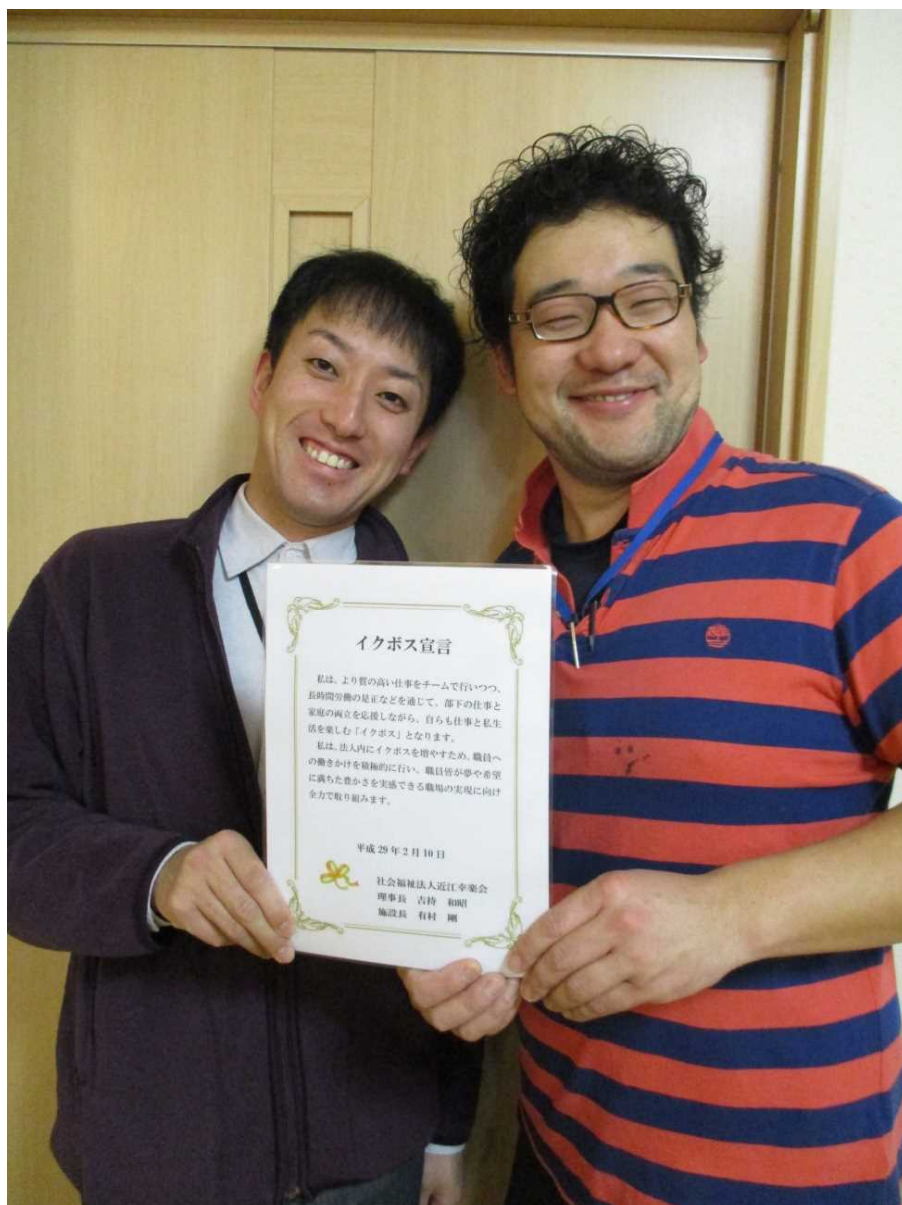 イクボス宣言
私は、より質の高い仕事をチームで行いつつ、
長時間労働の是正などを通じて、部下の仕事と
家庭の両立を応援しながら、自らも仕事と私生
活を楽しむ「イクボス」となります。
私は、法人内にイクボスを増やすため、職員へ
の働きかけを積極的に行い、職員皆が夢や希望
に満ちた豊かさを実感できる職場の実現に向け
全力で取り組みます。
平成 29 年 2 月 10 日
社会福祉法人近江幸楽会
理事長　吉持　和昭
施設長　有村　剛